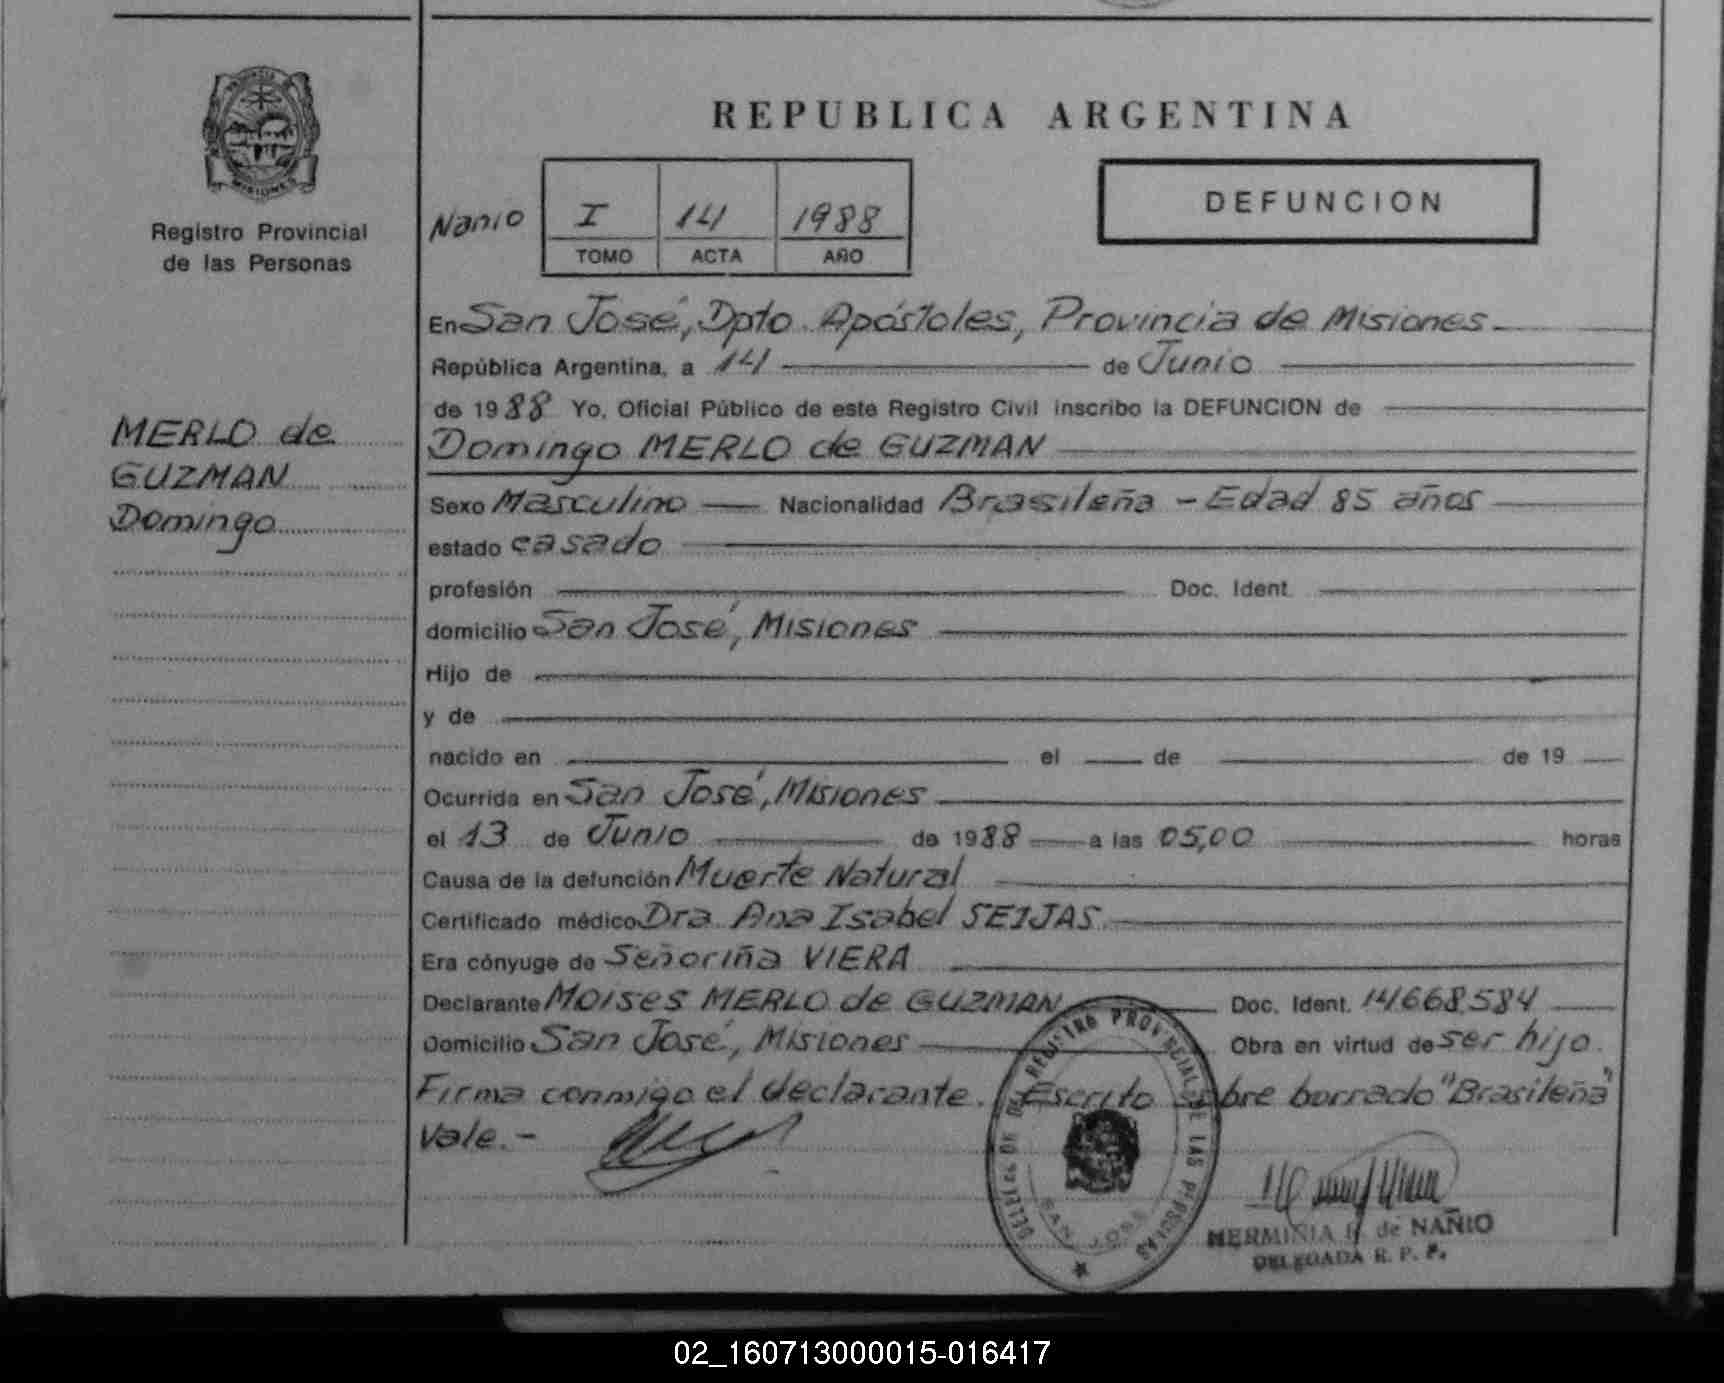 PROVINCIA
MISIONES
Registro Provincial
de las Personas
MERLO de
GUZMAN
Domingo
REPUBLICA ARGENTINA
Nanio
I 14 1988
TOMO ACTA AÑO
DEFUNCION
En San José, Dpto. Apóstoles, Provincia de Misiones
República Argentina, a 14 de Junio
de 1988 Yo, Oficial Público de este Registro Civil inscribo la DEFUNCION de
Domingo MERLO de GUZMAN
Sexo Masculino Nacionalidad Brasileña - Edad 85 años
estado casado
profesión Doc. Ident.
domicilio San José, Misiones
Hijo de
y de
nacido en el de de 19
Ocurrida en San José, Misiones
el 13 de Junio de 1988 a las 05,00 horas
Causa de la defunción Muerte Natural
Certificado médico Dra Ana Isabel SEIJAS.
Era cónyuge de Señoriña VIERA
Declarante MOISES MERLO de GUZMAN Doc. Ident. 14668.584
Domicilio San José, Misiones Obra en virtud de ser hijo.
Firma conmigo el declarante. Escrito sobre borrado "Brasileña"
Vale.-
REGISTRO PROVINCIAL DE LAS PERSONAS
SAN JOSE
HERMINIA H. de NAÑIO
DELEGADA R. P. P.
02_160713000015-016417